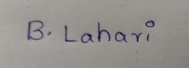 B. Lahari